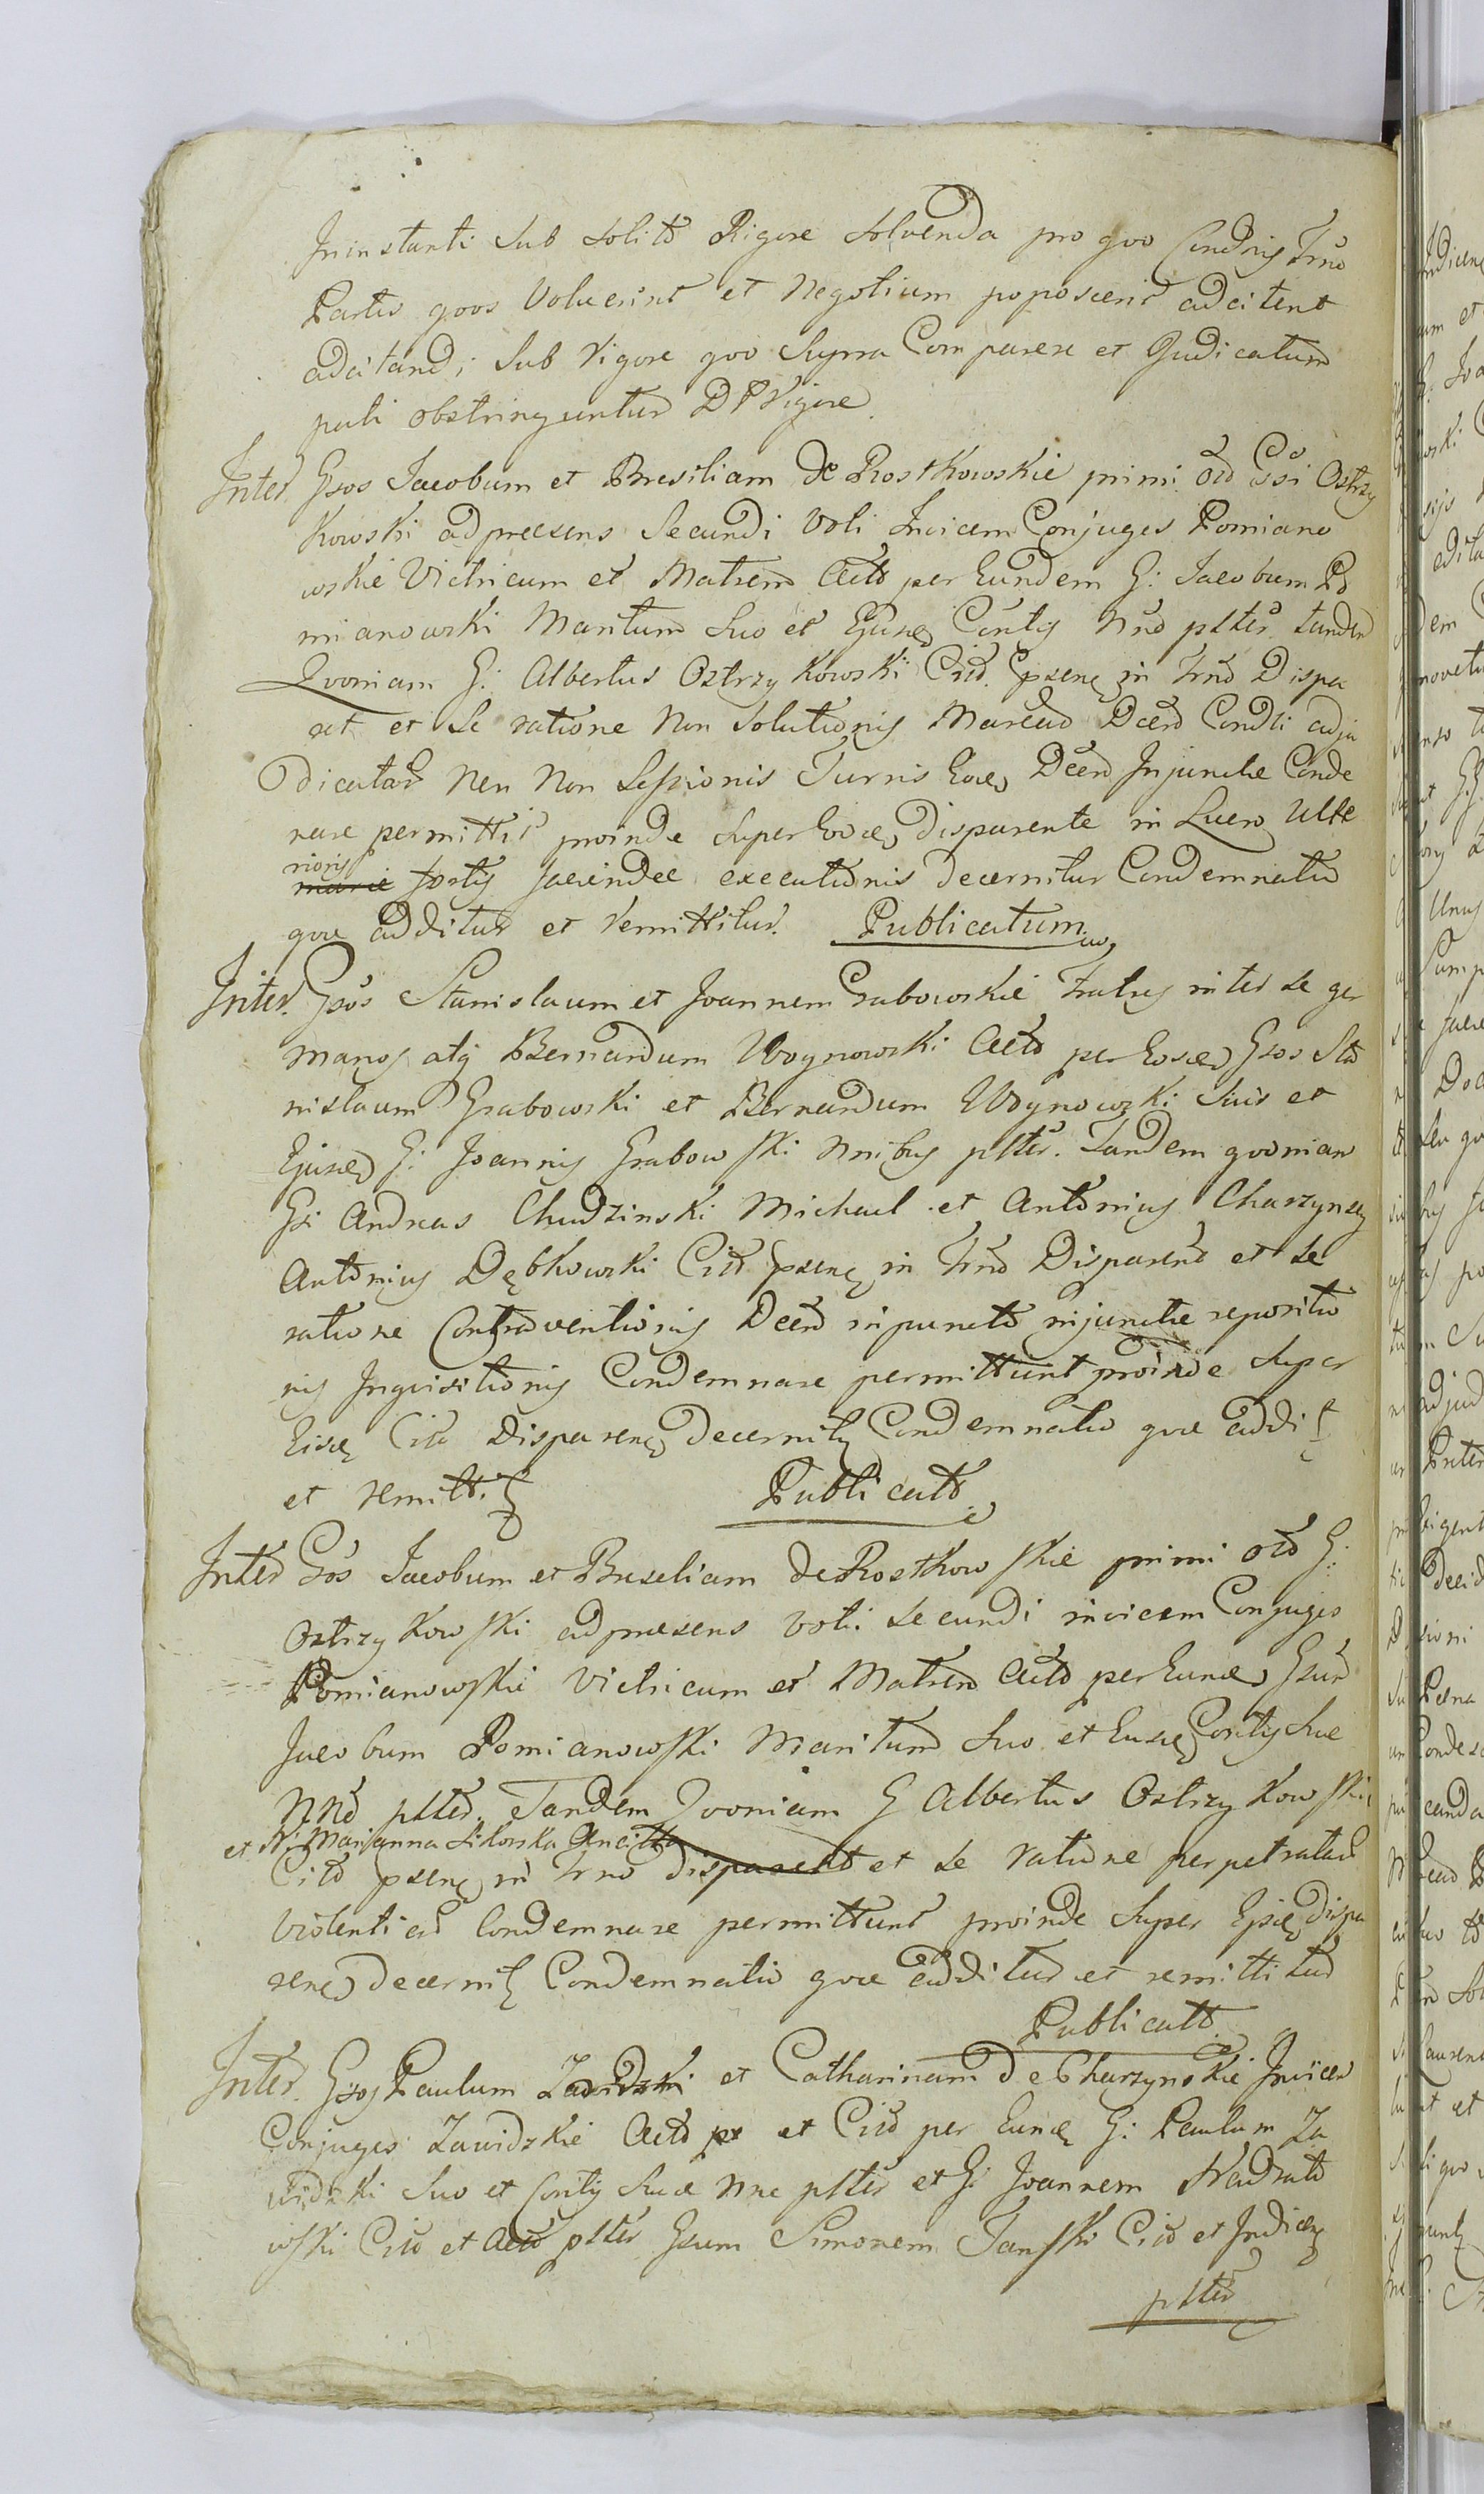 Ininstanti Sub Solito Rigore Solvenda pro quo Condnis Trno
Partes quos Voluerint et Negotium poposcerit adcitent
adcitand; Sub Vigore quo Supra Comparere et Judicatum
pati obstringuntur D P Vigore
Inter Gsos Jacobum et Bresiliam de Rostkowskie primi Gsi Ostrzy
kowski adpraesens Secundi Voti Invicem Conjuges Pomiano
wskie Vitricum et Matrem Acto per Eundem G: Jacobum Po
mianowski Maritum Suo et Ejusd Contis Nno pltter tandem
Quoniam G: Albertus Ostrzykowski Citd psens in Trno Dispa
ret et Se ratione Non Solutionis Marcar Decro Condti adju
dicatar Nec Non Sessionis Turris Eaed Decro Injunctae Conde
nare permittit proinde Super Eodem disparente in Lucro Ulte
rioris
marie fortis faciendae executionis decernitur Condemnatio
quae additur et remittitur. Publicatum
Inter. Gsos Stanislaum et Joannem Grabowskie Fratres inter se ger
manos atq Bernardum Woynowski Acto per Eosd Gsos Sta
nislaum Grabowski et Bernardum Woynowski Suis et
Ejusd G: Joannis Grabowski Nnibus pltter. Tandem quoniam
Gsi Andreas Chudzinski Michael et Antonius Charzynscy
Antonius Dębkowski Citd psens in Trno Disparent et Se
ratione Contraventionis Decro inpuncto injunctae reposito
nis Inquisitionis Condemnare permittunt proinde Super
Eisd Citd Disparens decernitur Condemnatio quae addi
et remitt. Publicatt
Inter Gsos Jacobum et Breseliam de Rostkowskie primi G:
Ostrzykowski adpraesens voti secundi invicem Conjuges
Pomianowskie Vitricum et Matrem Acto per Eund Gsum
Jacobum Pomianowski Maritum Suo et Ejusd Contis Suae
Nno pltter. Tandem Quoniam G Albertus Ostrzykowski
et N: Marianna Sikorska Ancilla
Citd psens in Trno disparent et Se ratione perpetratar
Violentiar Condemnare permittunt proinde Super Eisd dispa
rens decernitur Condemnatio quae additur et remittitur
Publicatt
Inter Gsos Paulum Zawidzki et Catharinam de Charzynskie Invicem
Conjuges Zawidzkie Acto pr et Citd per Eund G: Paulum Za
widzki Suo et Contis Suae Nne pltter et G: Joannem Nadrato
wski Citd et Acto pltter Gsum Simonem Janski Citd et Indicen
pltter